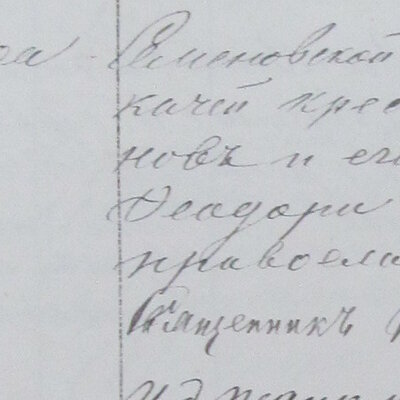 Семеновской
качей крес
новъ и ег
Ѳеодори
правосла
Священникъ